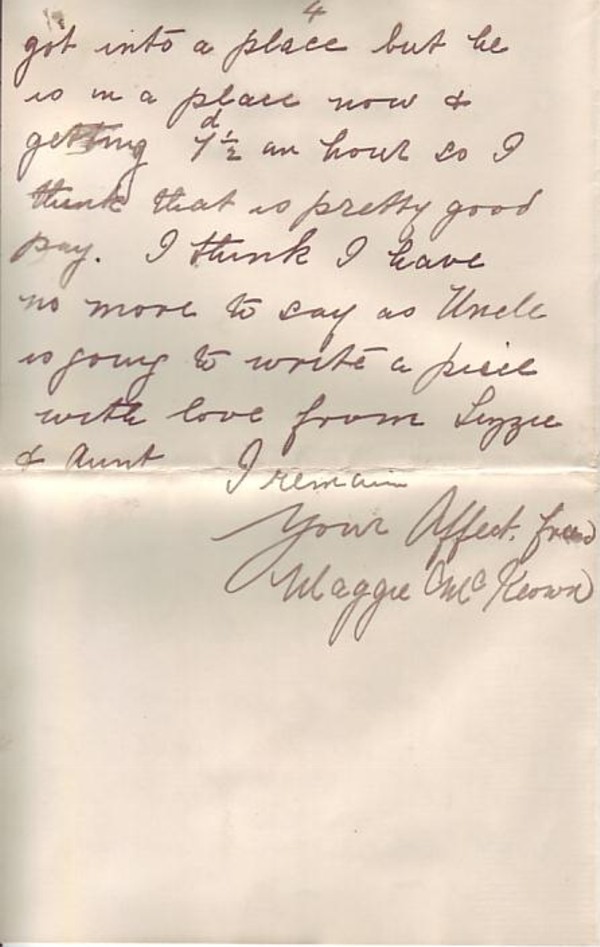 4
got into a place but he
is in a place now &
getting 7½d an hour so I
think that is pretty good
pay. I think I have
no more to say as Uncle
is going to write a piece
with love from Lizzie
& Aunt I remain
Your Affect. friend
Maggie McKeown